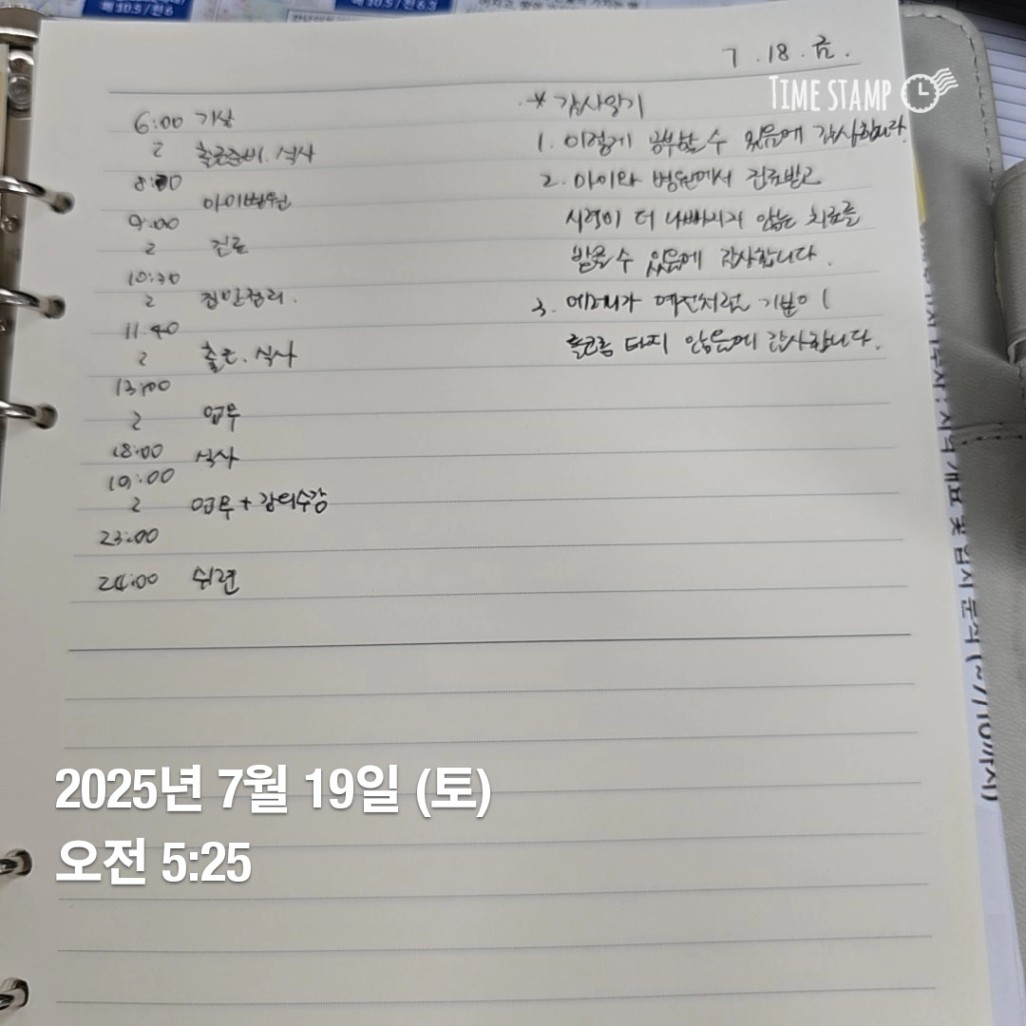 7. 18. 금.
TIME STAMP
6:00 기상
2 출근준비. 식사
8:30
아이병원
9:00
2 진료
10:30
2 집안정리.
11.40
2 출근. 식사
13:00
2 업무
18:00 식사
19:00
2 업무 + 강의수강
23:00
24:00 취련
* 감사일기
1. 이렇게 공부할 수 있음에 감사합니다.
2. 아이와 병원에서 진료받고
시력이 더 나빠지지 않는 치료를
받을 수 있음에 감사합니다.
3. 예전처럼 기분이
타지 않음에 감사합니다.
2025년 7월 19일 (토)
오전 5:25